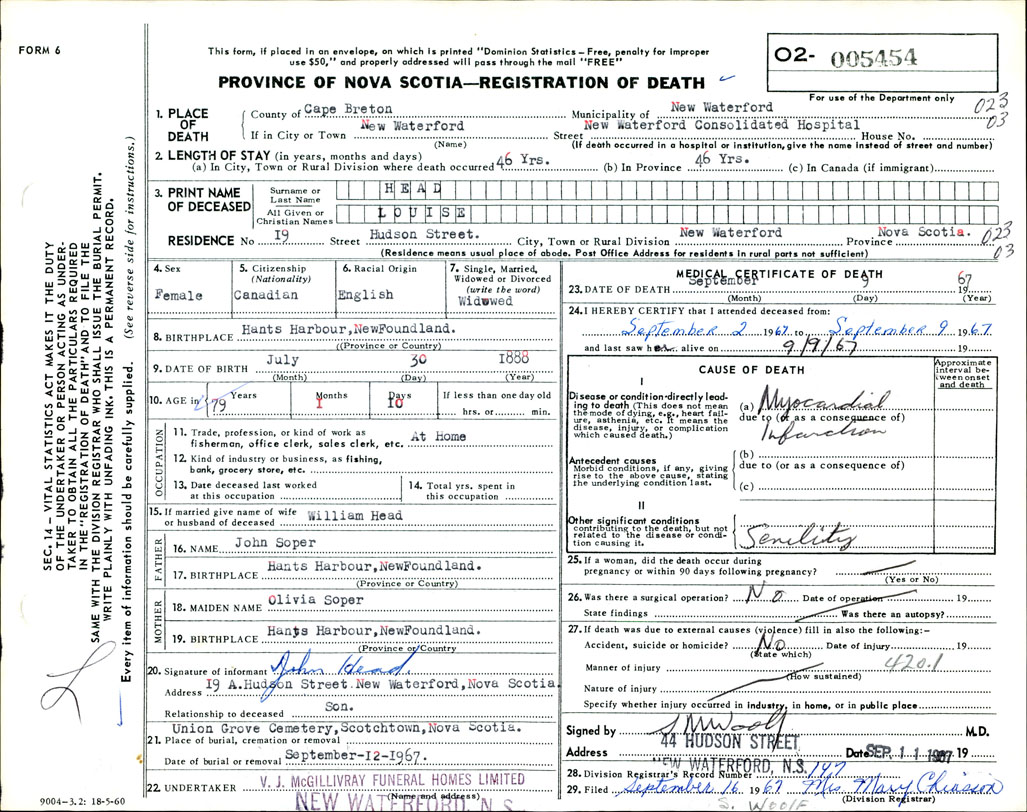 FORM 6
This form, if placed in an envelope, on which is printed "Dominion Statistics – Free, penalty for improper
use $50," and properly addressed will pass through the mail "FREE"
PROVINCE OF NOVA SCOTIA—REGISTRATION OF DEATH
O2- 005454
For use of the Department only
023
03
1. PLACE OF DEATH
County of Cape Breton Municipality of New Waterford
If in City or Town New Waterford Street New Waterford Consolidated Hospital House No.
(Name) (If death occurred in a hospital or institution, give the name instead of street and number)
2. LENGTH OF STAY (in years, months and days)
(a) In City, Town or Rural Division where death occurred 46 Yrs. (b) In Province 46 Yrs. (c) In Canada (if immigrant)
3. PRINT NAME OF DECEASED
Surname or Last Name HEAD
All Given or Christian Names LOUISE
RESIDENCE No 19 Street Hudson Street. City, Town or Rural Division New Waterford Province Nova Scotia. 023
(Residence means usual place of abode. Post Office Address for residents in rural parts not sufficient) 03
4. Sex
Female
5. Citizenship (Nationality)
Canadian
6. Racial Origin
English
7. Single, Married, Widowed or Divorced (write the word)
Widowed
8. BIRTHPLACE Hants Harbour,NewFoundland.
((Province or Country)
9. DATE OF BIRTH July 30 1888
(Month) (Day) (Year)
10. AGE in 79 Years 1 Months 10 Days If less than one day old
hrs. or min.
OCCUPATION
11. Trade, profession, or kind of work as
fisherman, office clerk, sales clerk, etc. At Home
12. Kind of industry or business, as fishing,
bank, grocery store, etc.
13. Date deceased last worked
at this occupation
14. Total yrs. spent in
this occupation
15. If married give name of wife
or husband of deceased William Head
FATHER
16. NAME John Soper
17. BIRTHPLACE Hants Harbour,NewFoundland.
(Province or Country)
MOTHER
18. MAIDEN NAME Olivia Soper
19. BIRTHPLACE Hants Harbour,NewFoundland.
(Province or Country)
20. Signature of informant John Head
Address 19 A.Hudson Street.New Waterford,Nova Scotia.
Relationship to deceased Son.
Union Grove Cemetery,Scotchtown,Nova Scotia.
21. Place of burial, cremation or removal
Date of burial or removal September-12-1967.
22. UNDERTAKER V. J. McGILLIVRAY FUNERAL HOMES LIMITED
(Name and address)
NEW WATERFORD, N.S.
9004–3.2: 18-5-60
MEDICAL CERTIFICATE OF DEATH
23. DATE OF DEATH September 9 1967
(Month) (Day) (Year)
24. I HEREBY CERTIFY that I attended deceased from:
September 2 1967 to September 9 1967
and last saw her alive on 9/9/67 19
CAUSE OF DEATH
Approximate interval between onset and death
I
Disease or condition directly leading to death (This does not mean the mode of dying, e.g., heart failure, asthenia, etc. It means the disease, injury, or complication which caused death.)
(a) Myocardial
due to (or as a consequence of)
Infarction
Antecedent causes
Morbid conditions, if any, giving rise to the above cause, stating the underlying condition last.
(b)
due to (or as a consequence of)
(c)
II
Other significant conditions
contributing to the death, but not related to the disease or condition causing it.
Senility
25. If a woman, did the death occur during
pregnancy or within 90 days following pregnancy?
(Yes or No)
26. Was there a surgical operation? No Date of operation 19
State findings Was there an autopsy?
27. If death was due to external causes (violence) fill in also the following:–
Accident, suicide or homicide? No Date of injury 19
(State which)
Manner of injury 420.1
(How sustained)
Nature of injury
Specify whether injury occurred in industry, in home, or in public place
Signed by S M Woolf M.D.
Address 44 HUDSON STREET Date SEP 11 1967 19
NEW WATERFORD, N.S.
28. Division Registrar's Record Number 147
29. Filed September 16 1967 Mrs Mary Chiasson
(Division Registrar)
S. WOOLF
SEC. 14 – VITAL STATISTICS ACT MAKES IT THE DUTY
OF THE UNDERTAKER OR PERSON ACTING AS UNDER-
TAKER TO OBTAIN ALL THE PARTICULARS REQUIRED
IN THE "REGISTRATION OF DEATH" AND TO FILE THE
SAME WITH THE DIVISION REGISTRAR WHO SHALL ISSUE THE BURIAL PERMIT.
WRITE PLAINLY WITH UNFADING INK. THIS IS A PERMANENT RECORD.
Every item of information should be carefully supplied. (See reverse side for instructions.)